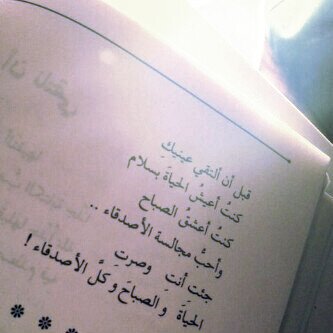 قبل أن ألتقي عينيكِ
كنتُ أعيشُ الحياةَ بسلام
كنتُ أعشقُ الصباح
وأحبُّ مجالسة الأصدقاء ..
جئتِ أنتِ وصرتِ
الحياةَ والصباحَ وكلَّ الأصدقاء !
* * * *